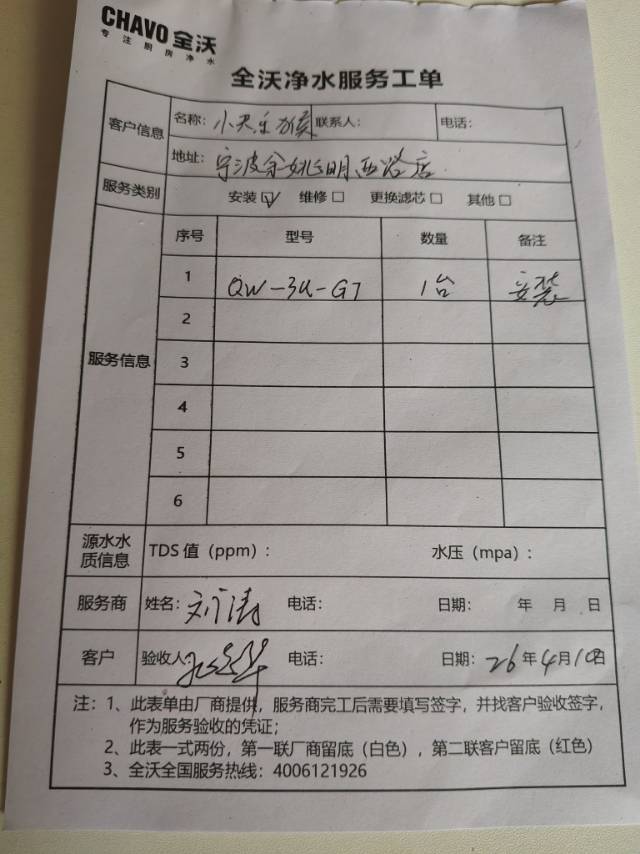 CHAVO 全沃
专注厨房净水
全沃净水服务工单
客户信息 名称：小天主 联系人： 电话：
地址：宁波余姚明西路店
服务类别 安装☑ 维修□ 更换滤芯□ 其他□
服务信息 序号 型号 数量 备注
1 QW-3U-G7 1台 安装
2
3
4
5
6
源水水质信息 TDS 值（ppm）： 水压（mpa）：
服务商 姓名：刘涛 电话： 日期： 年 月 日
客户 验收人： 电话： 日期：26年4月10日
注：1、此表单由厂商提供，服务商完工后需要填写签字，并找客户验收签字，
作为服务验收的凭证；
2、此表一式两份，第一联厂商留底（白色），第二联客户留底（红色）
3、全沃全国服务热线：4006121926